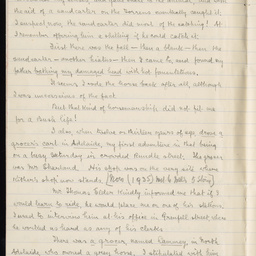 the aid of a sand carter on the Torrens eventually caught it,
I suspect now, the sand carter did most of the catching! At
I remember offering him a shilling if he could catch it.
First there was the fall — then a blank — then the
sand carter — another hiatus — then I came to and found my
father bathing my damaged head with his fomentations.
It seems I rode the horse back after all, although
I was unconscious of the fact.
But that kind of horsemanship did not fit me
for a bush life!
I also, when twelve or thirteen years of age drove a
grocer's cart in Adelaide, my first adventure in that being
on a busy Saturday in crowded Rundle Street. The grocer
was Mr. His shop was on the way side where
shop now stands. (Here (1935)
Mr Thomas Elder kindly informed me that if I
would learn to ride, he would place me on one of his stations.
I used to interview him at his office in Grenfell Street where
he worked as hard as any of his clerks.
There was a grocer, named in North
Adelaide who owned a grey horse. I stipulated with him